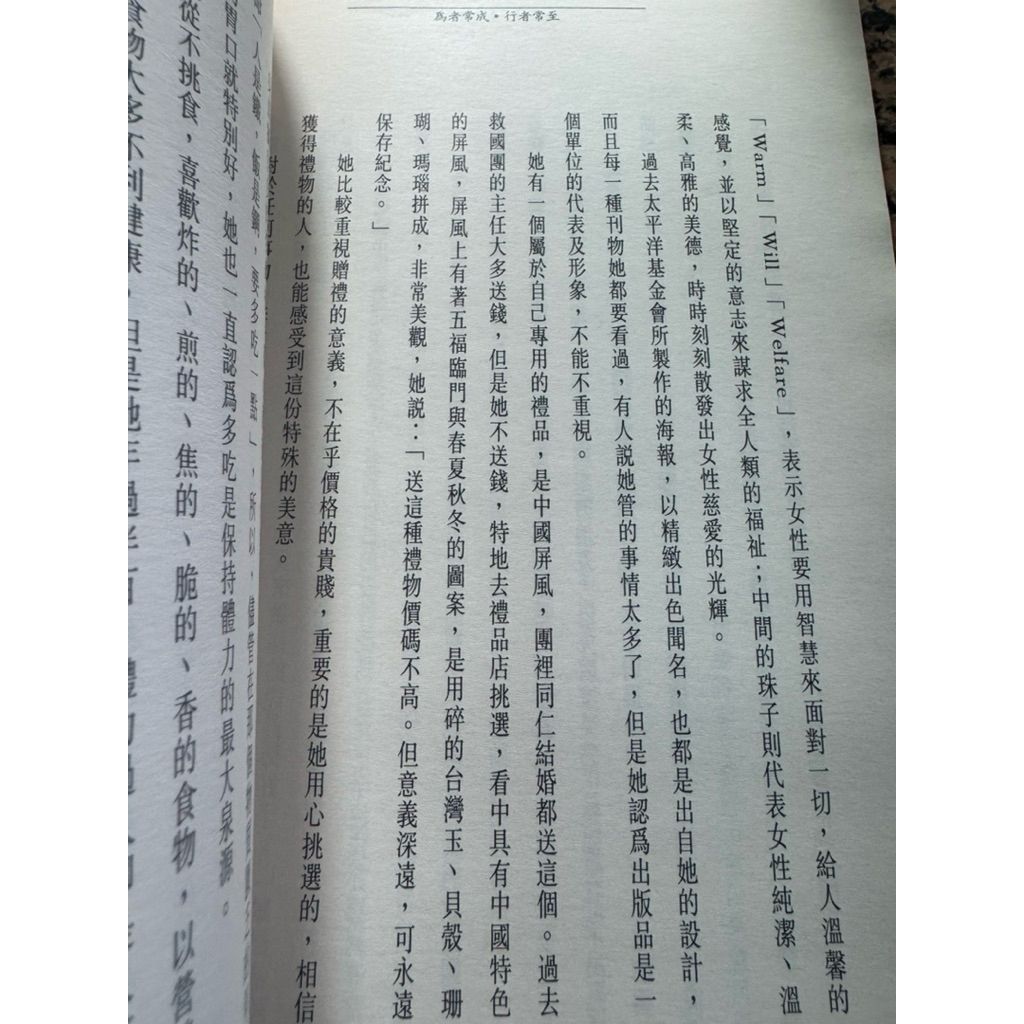 為者常成・行者常至
「Warm」「Will」「Welfare」，表示女性要用智慧來面對一切，給人溫馨的
感覺，並以堅定的意志來謀求全人類的福祉；中間的珠子則代表女性純潔、溫
柔、高雅的美德，時時刻刻散發出女性慈愛的光輝。
過去太平洋基金會所製作的海報，以精緻出色聞名，也都是出自她的設計，
而且每一種刊物她都要看過，有人說她管的事情太多了，但是她認爲出版品是一
個單位的代表及形象，不能不重視。
她有一個屬於自己專用的禮品，是中國屏風，團裡同仁結婚都送這個。過去
救國團的主任大多送錢，但是她不送錢，特地去禮品店挑選，看中具有中國特色
的屏風，屏風上有著五福臨門與春夏秋冬的圖案，是用碎的台灣玉、貝殼、珊
瑚、瑪瑙拼成，非常美觀，她說：「送這種禮物價碼不高。但意義深遠，可永遠
保存紀念。」
她比較重視贈禮的意義，不在乎價格的貴賤，重要的是她用心挑選的，相信
獲得禮物的人，也能感受到這份特殊的美意。
人是鐵，飯是鋼，要多吃一點」，所以，儘管在
胃口就特別好，她也一直認爲多吃是保持體力的最大泉源。
從不挑食，喜歡炸的、煎的、焦的、脆的、香的食物，以營
食物大多不利健康，但是她年過半百